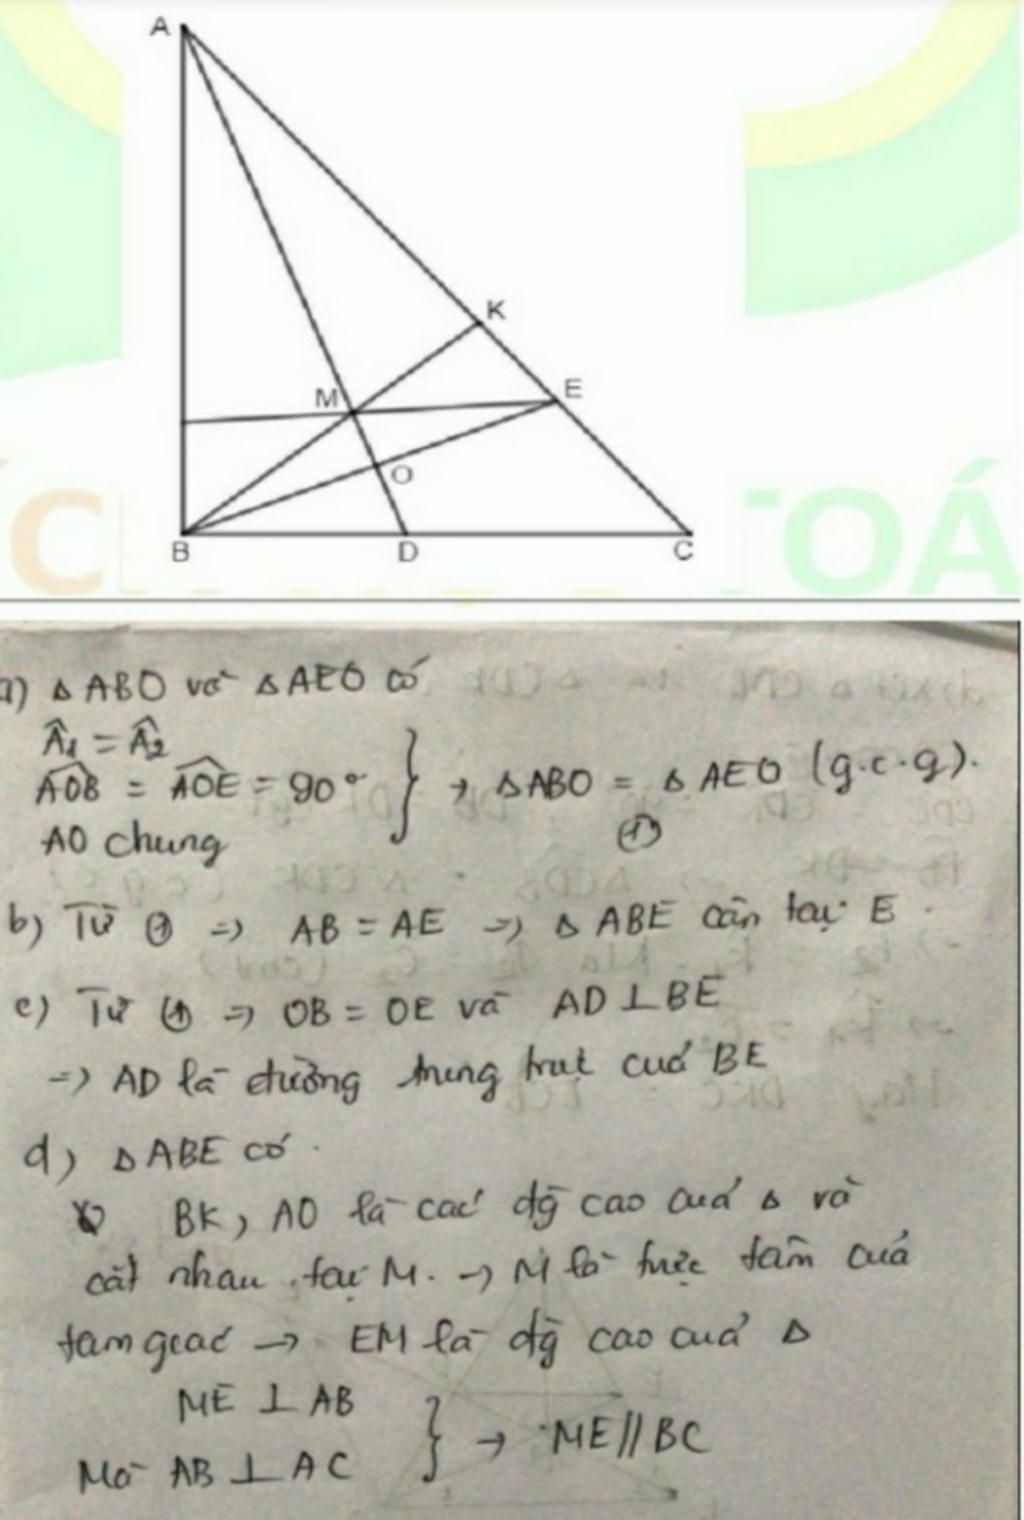 A
K
M
E
O
B
D
C
C TOÁ
a) Δ ABO và Δ AEO có
Â1 = Â2
AOB = AOE = 90° } → Δ ABO = Δ AEO (g.c.g).
AO chung ①
b) Từ ① => AB = AE => Δ ABE cân tại E.
c) Từ ① => OB = OE và AD ⊥ BE
=> AD là đường trung trực của BE
d) Δ ABE có
BK, AO là các đg cao của Δ và
cắt nhau tại M. → M là trực tâm của
tam giác → EM là đg cao của Δ
ME ⊥ AB
Mà AB ⊥ AC } → ME // BC